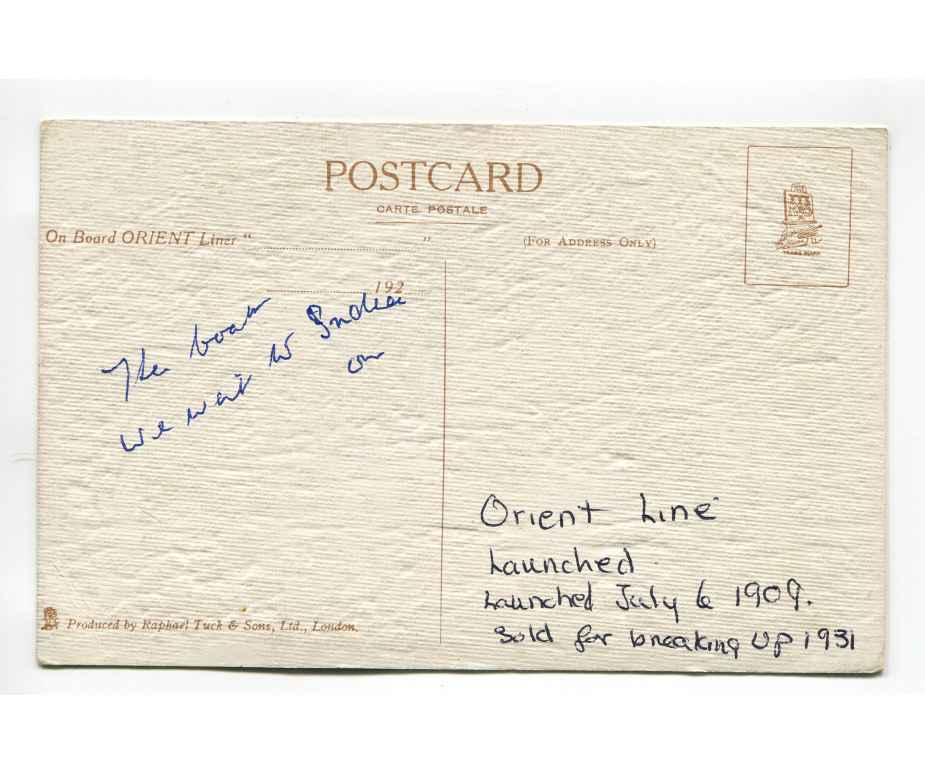 POSTCARD
CARTE POSTALE
On Board ORIENT Liner " "
(FOR ADDRESS ONLY)
192
The boat
we went to India
on
Orient Line
Launched
Launched July 6 1909.
Sold for breaking up 1931
Produced by Raphael Tuck & Sons, Ltd., London.
TRADE MARK